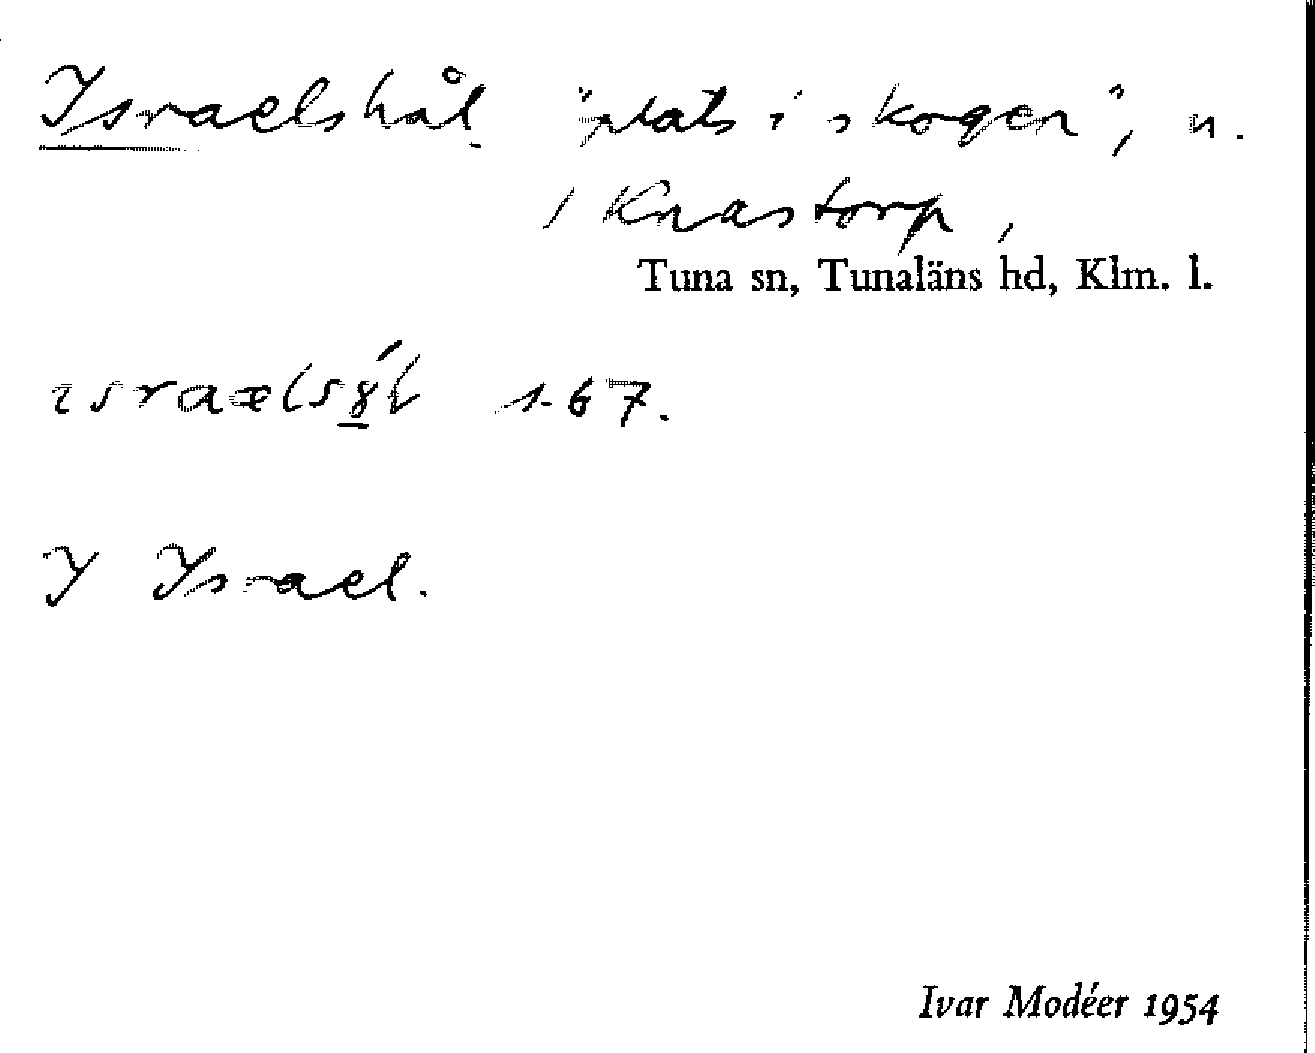 Israelshål. "plats i skogen", n.
i Knastorp,
Tuna sn, Tunaläns hd, Klm. l.
167.
I Israel.
Ivar Modéer 1954